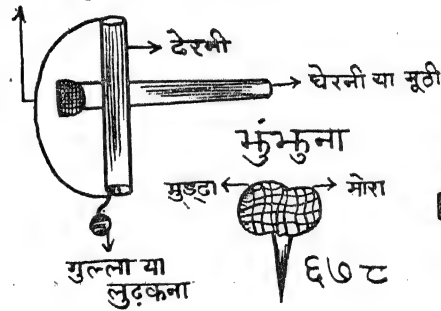 देरनी
घेरनी या मूठी
झुंझुना
मुड्ढा
मोरा
गुल्ला या
लुढ़कना
६७८